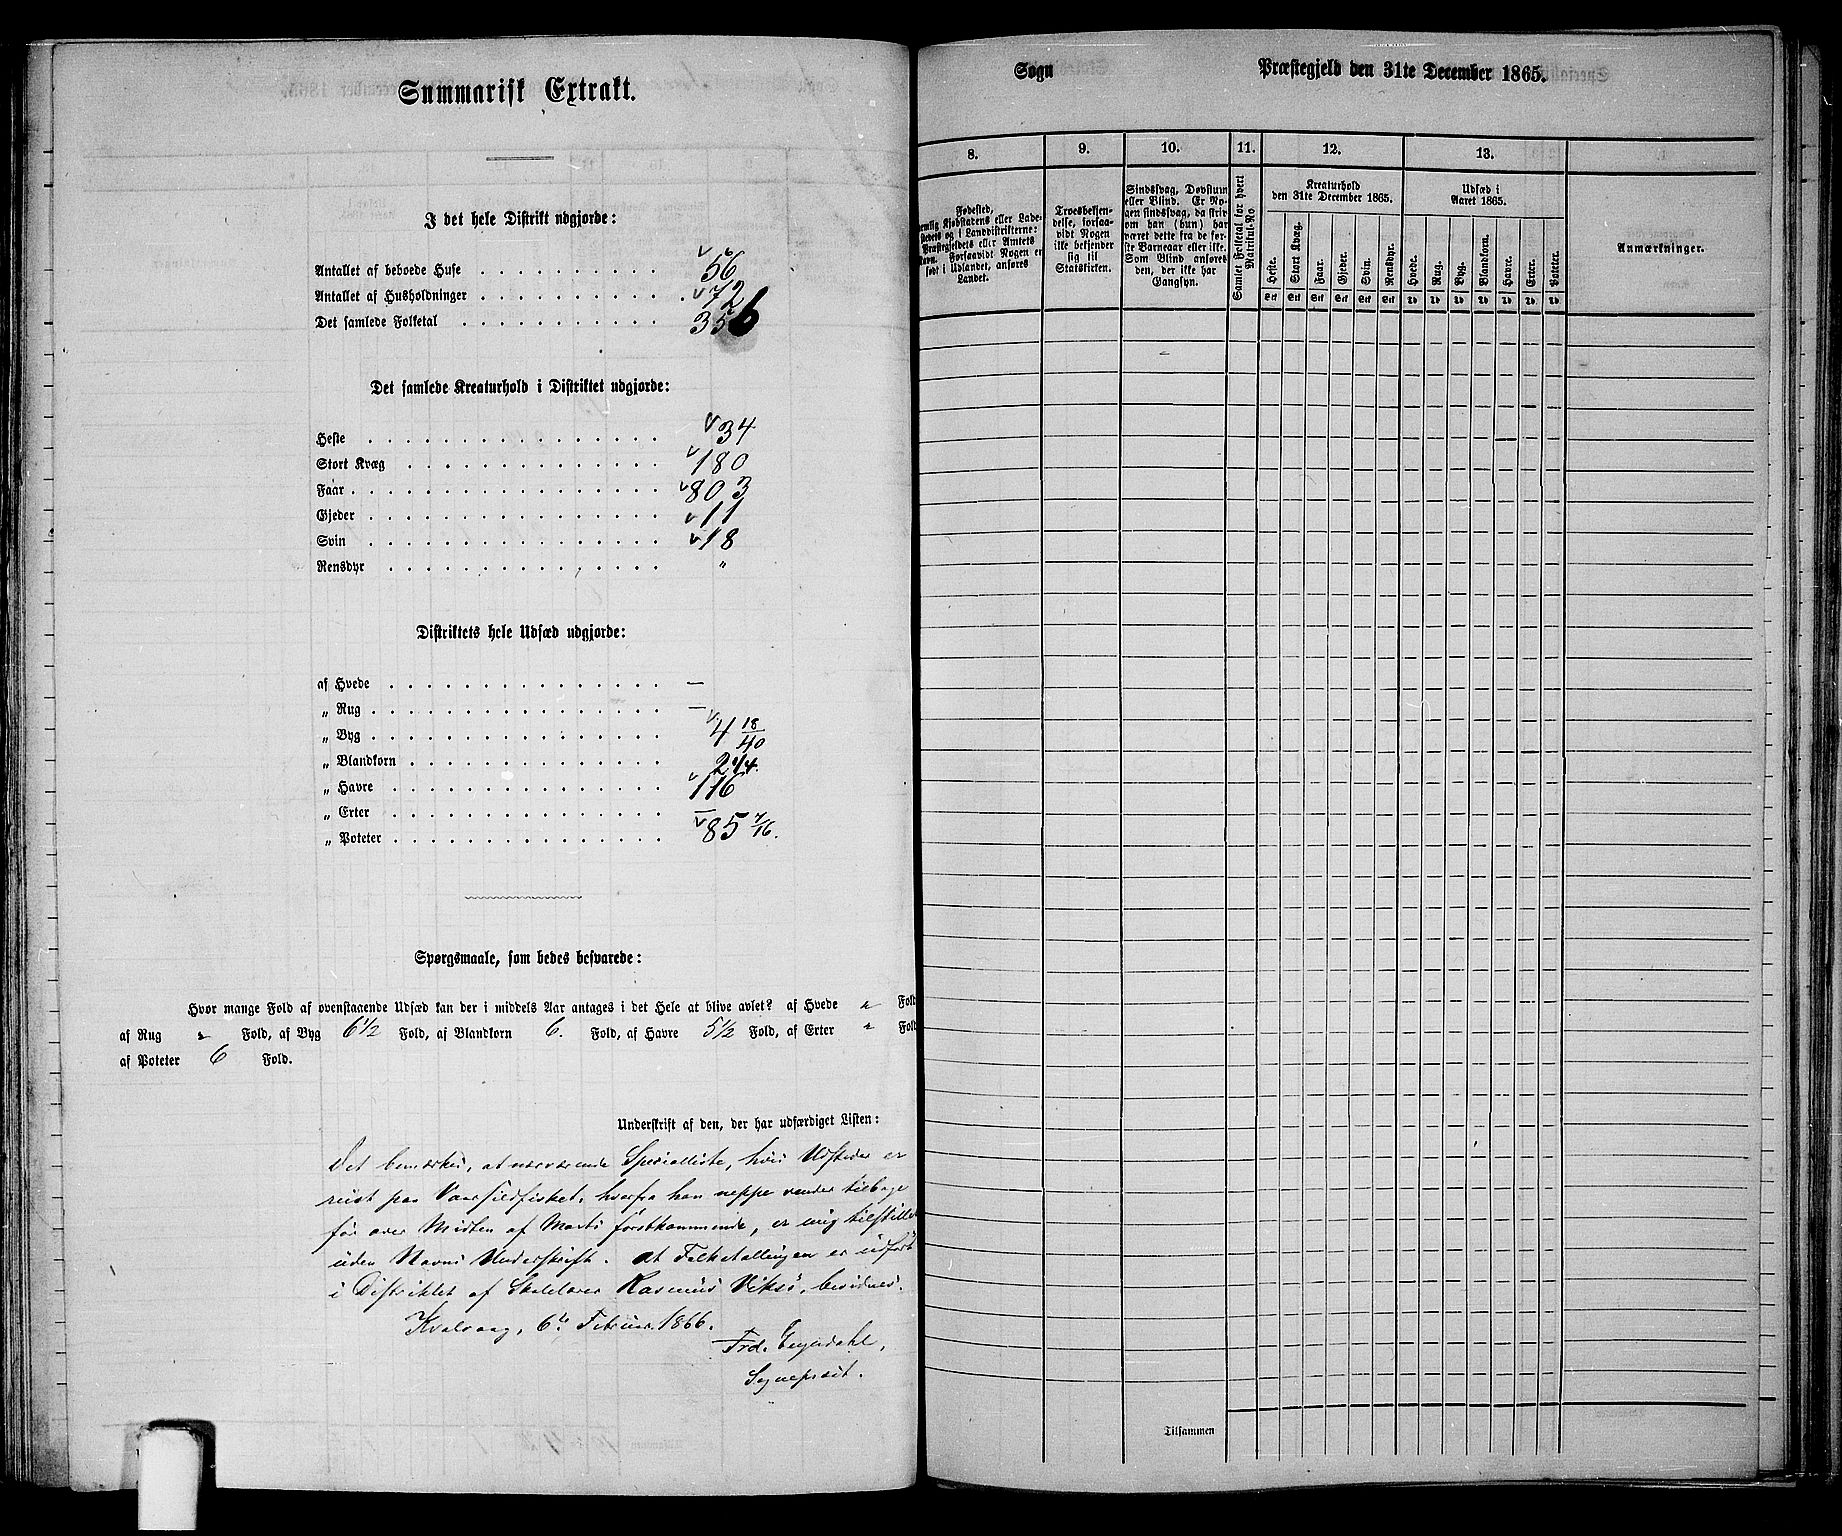 Summarisk Extrakt.
I det hele Distrikt udgjorde:
Antallet af beboede Huse 56
Antallet af Husholdninger 72
Det samlede Folketal 356
Det samlede Kreaturhold i Distriktet udgjorde:
Heste 34
Stort Kvæg 180
Faar 803
Gjeder 11
Sviin 18
Rensdyr "
Distriktets hele Udsæd udgjorde:
af Hvede —
„ Rug —
„ Byg 4 18/40
„ Blandkorn 244.
„ Havre 116
„ Erter —
„ Poteter 85 7/16.
Spørgsmaale, som bedes besvarede:
Hvor mange Fold af ovenstaaende Udsæd kan der i middels Aar antages i det Hele at blive avlet? af Hvede " Fold
af Rug " Fold, af Byg 6 1/2 Fold, af Blandkorn 6. Fold, af Havre 5 1/2 Fold, af Erter " Fold
af Poteter 6 Fold.
Underskrift af den, der har udfærdiget Listen:
Det bemærkes, at nærværende Specialliste, hvis Udsteder er
reist paa Vaarsildfisket, hvorfra han neppe vender tilbage
før over Midten af Marts førstkommende, er mig tilstillet
uden Navns Underskrift. At Folketællingen er udført
i Distriktet af Skolelærer Rasmus Viksø, bevidnes.
Kvalvaag, 6te Februar 1866.
Frd.
Sognepræst.
Sogn Præstegjeld den 31te December 1865.
8. 9. 10. 11. 12. 13.
Fødested,
nemlig Kjøbstadens eller Lade-
stedets og i Landdistrikterne:
Præstegjeldets eller Amtets
Navn. Forsaavidt Nogen er
født i Udlandet, anføres
Landet.
Troesbekjen-
delse, forsaa-
vidt Nogen
ikke bekjender
sig til
Statskirken.
Sindssvag, Døvstum
eller Blind. Er No-
gen sindssvag, da skriv
om han (hun) har
været dette fra de før-
ste Barneaar eller ikke.
Som Blind anføres
den, der ikke har
Gangsyn.
Samlet Folketal for hvert
Matrikul-No
Kreaturhold
den 31te December 1865.
Heste. Stort Kvæg. Faar. Gjeder. Svin. Rensdyr.
Stk Stk Stk Stk Stk Stk
Udsæd i
Aaret 1865.
Hvede. Rug. Byg. Blandkorn. Havre. Erter. Poteter.
Anmærkninger.
Tilsammen